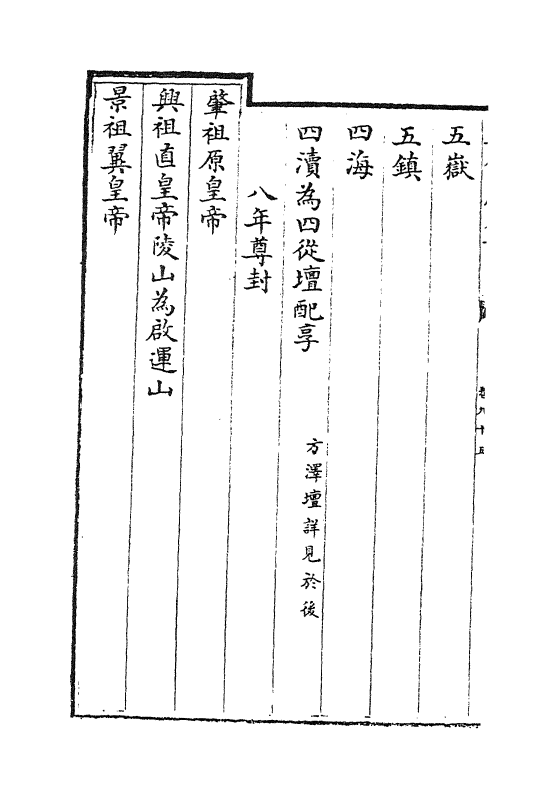 五嶽
五鎮
四海
四瀆為四從壇配享 方澤壇詳見於後
八年尊封
肇祖原皇帝
興祖直皇帝陵山為啟運山
景祖翼皇帝
卷九十五